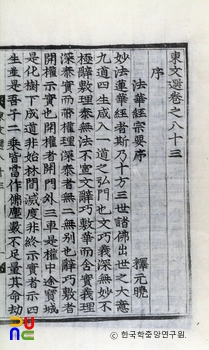 東文選卷之八十三
序
法華經宗要序 釋元曉
妙法蓮華經者斯乃十方三世諸佛出世之大意
九道四生咸入一道之弘門也文巧義深無妙不
極辭敷理泰無法不宣文辭巧敷華而含實義理
深泰實而帶權理深泰者無二無別也辭巧敷者
開權示實也開權者開門外三車是權中途寶城
是化樹下成道非始林間滅度非終示實者示四
生並是吾子二乘皆當作佛塵數不足量其命劫
© 한국학중앙연구원